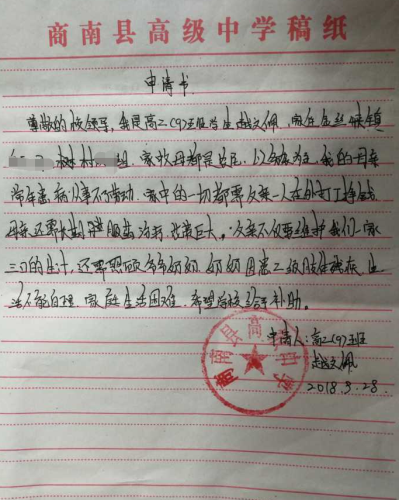 商南县高级中学稿纸
申请书
尊敬的校领导，我是高二(9)班学生赵文佩，家住金丝峡镇
村 组，家父母都是农民，以务农为主，我的母亲
常年患病从事不了劳动，家中的一切都要父亲一人在外打工挣钱
母亲还需要 治疗 花费巨大。父亲不仅要维护我们一家
三口的生计，还要照顾爷爷奶奶，奶奶因患二级肢体残疾，生
活不能自理，家庭生活困难，希望学校给予补助。
申请人：高二(9)班
赵文佩
2018.3.28.
商南县高级中学